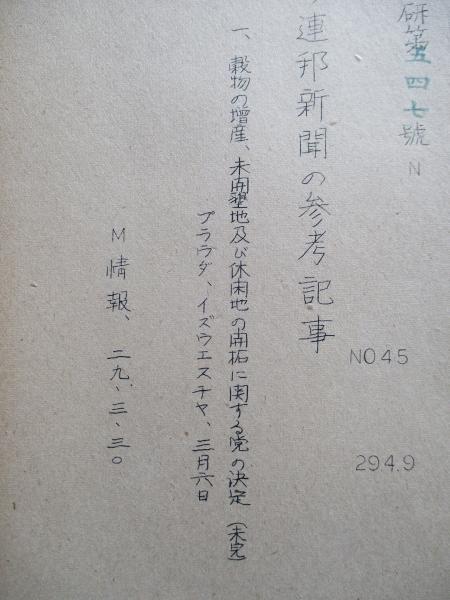 研第五四七號 N
連邦新聞の参考記事
NO45
294.9
一、穀物の増産、未開墾地及び休閑地の開拓に関する党の決定(未完)
プラウダ、イズウエスチヤ、三月六日
M情報、二九、三、三〇